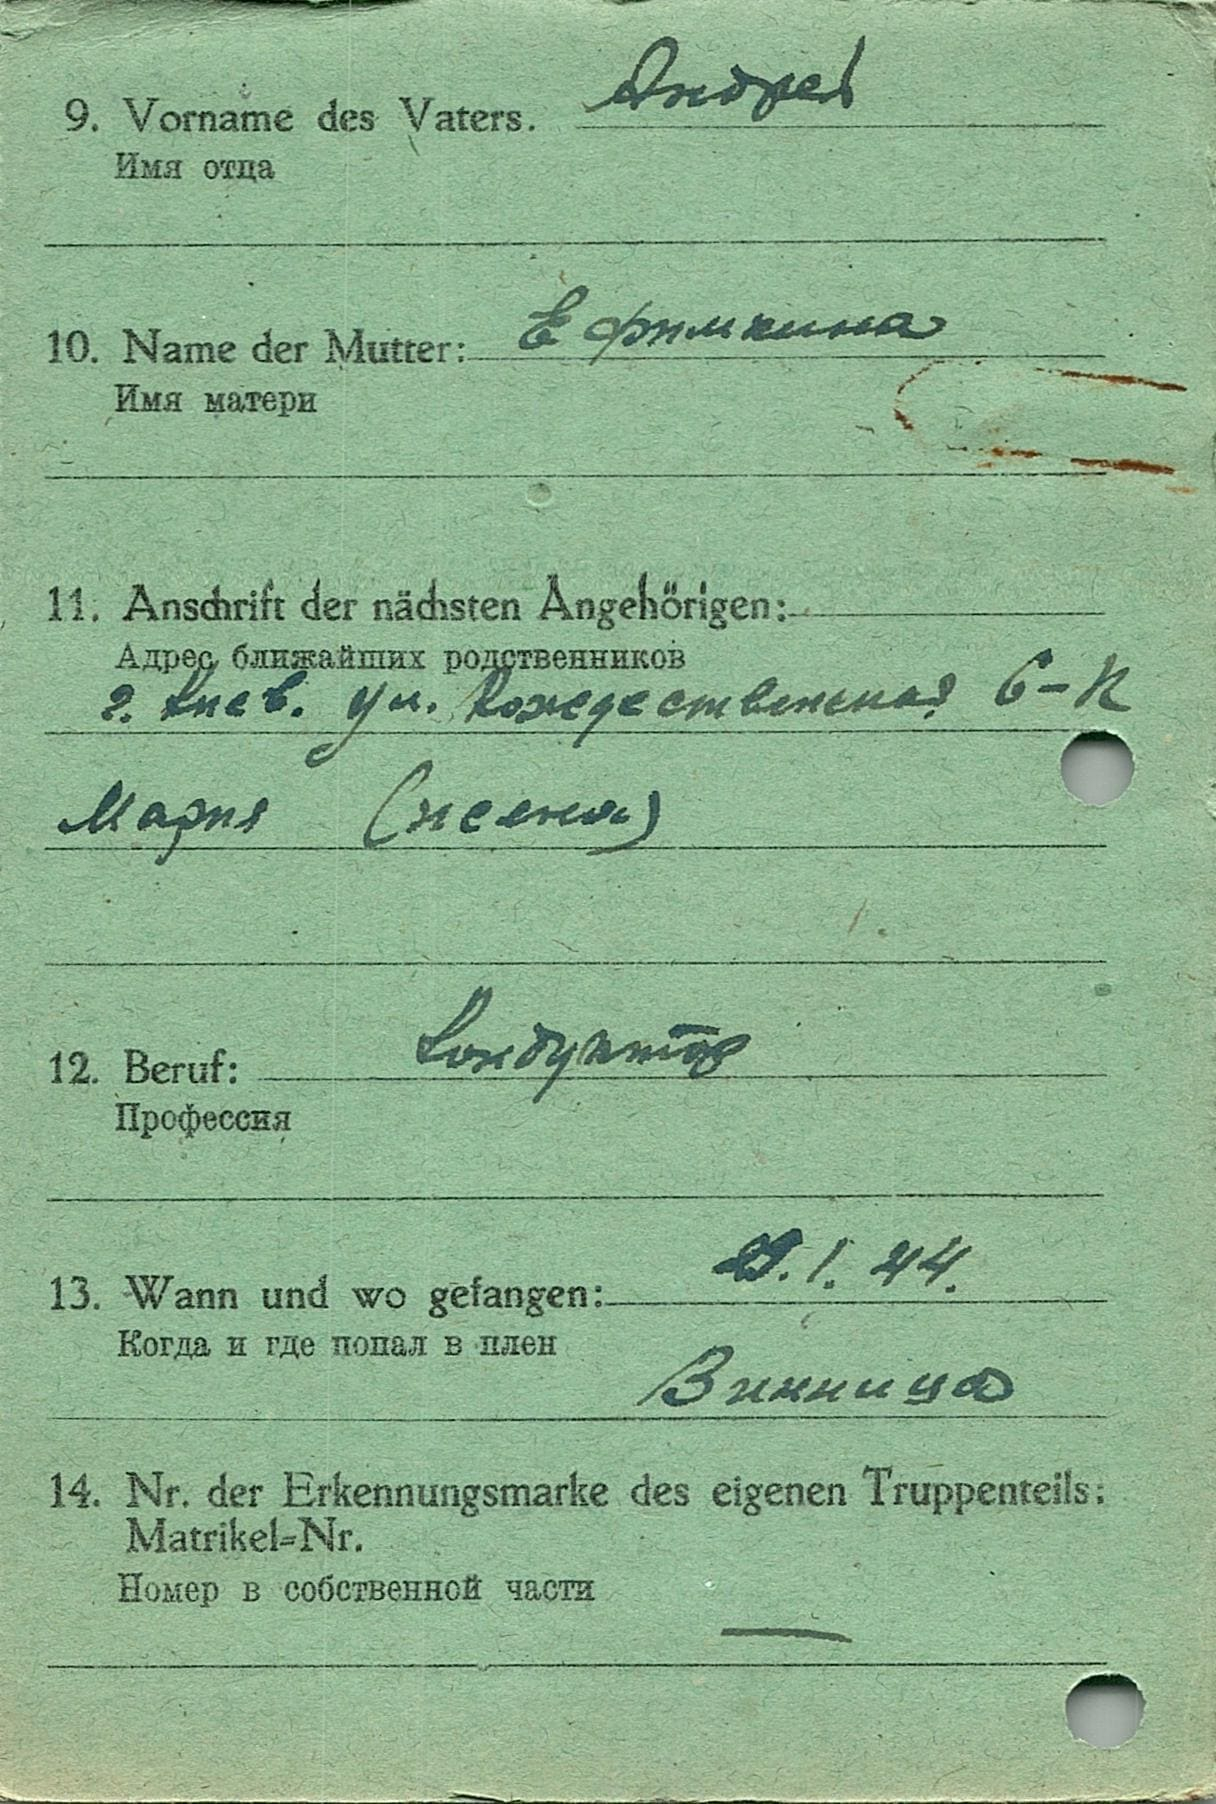 9. Vorname des Vaters. Андрей
Имя отца
10. Name der Mutter: Ефимкина
Имя матери
11. Anschrift der nächsten Angehörigen:
Адрес ближайших родственников
г. Киев. ул. Рождественская 6-К
Мария (жена)
12. Beruf: Кондуктор
Профессия
13. Wann und wo gefangen: .1.44.
Когда и где попал в плен
Винница
14. Nr. der Erkennungsmarke des eigenen Truppenteils:
Matrikel=Nr.
Номер в собственной части
—